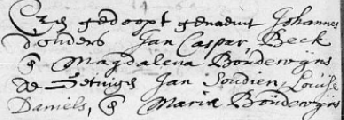 Is gedoopt genaemt Johannes
d'ouders Jan Casper Beck
& Magdalena Boudewyns
de Getuige Jan Soudien, Louijse
Daniels, & Maria Boudewyns